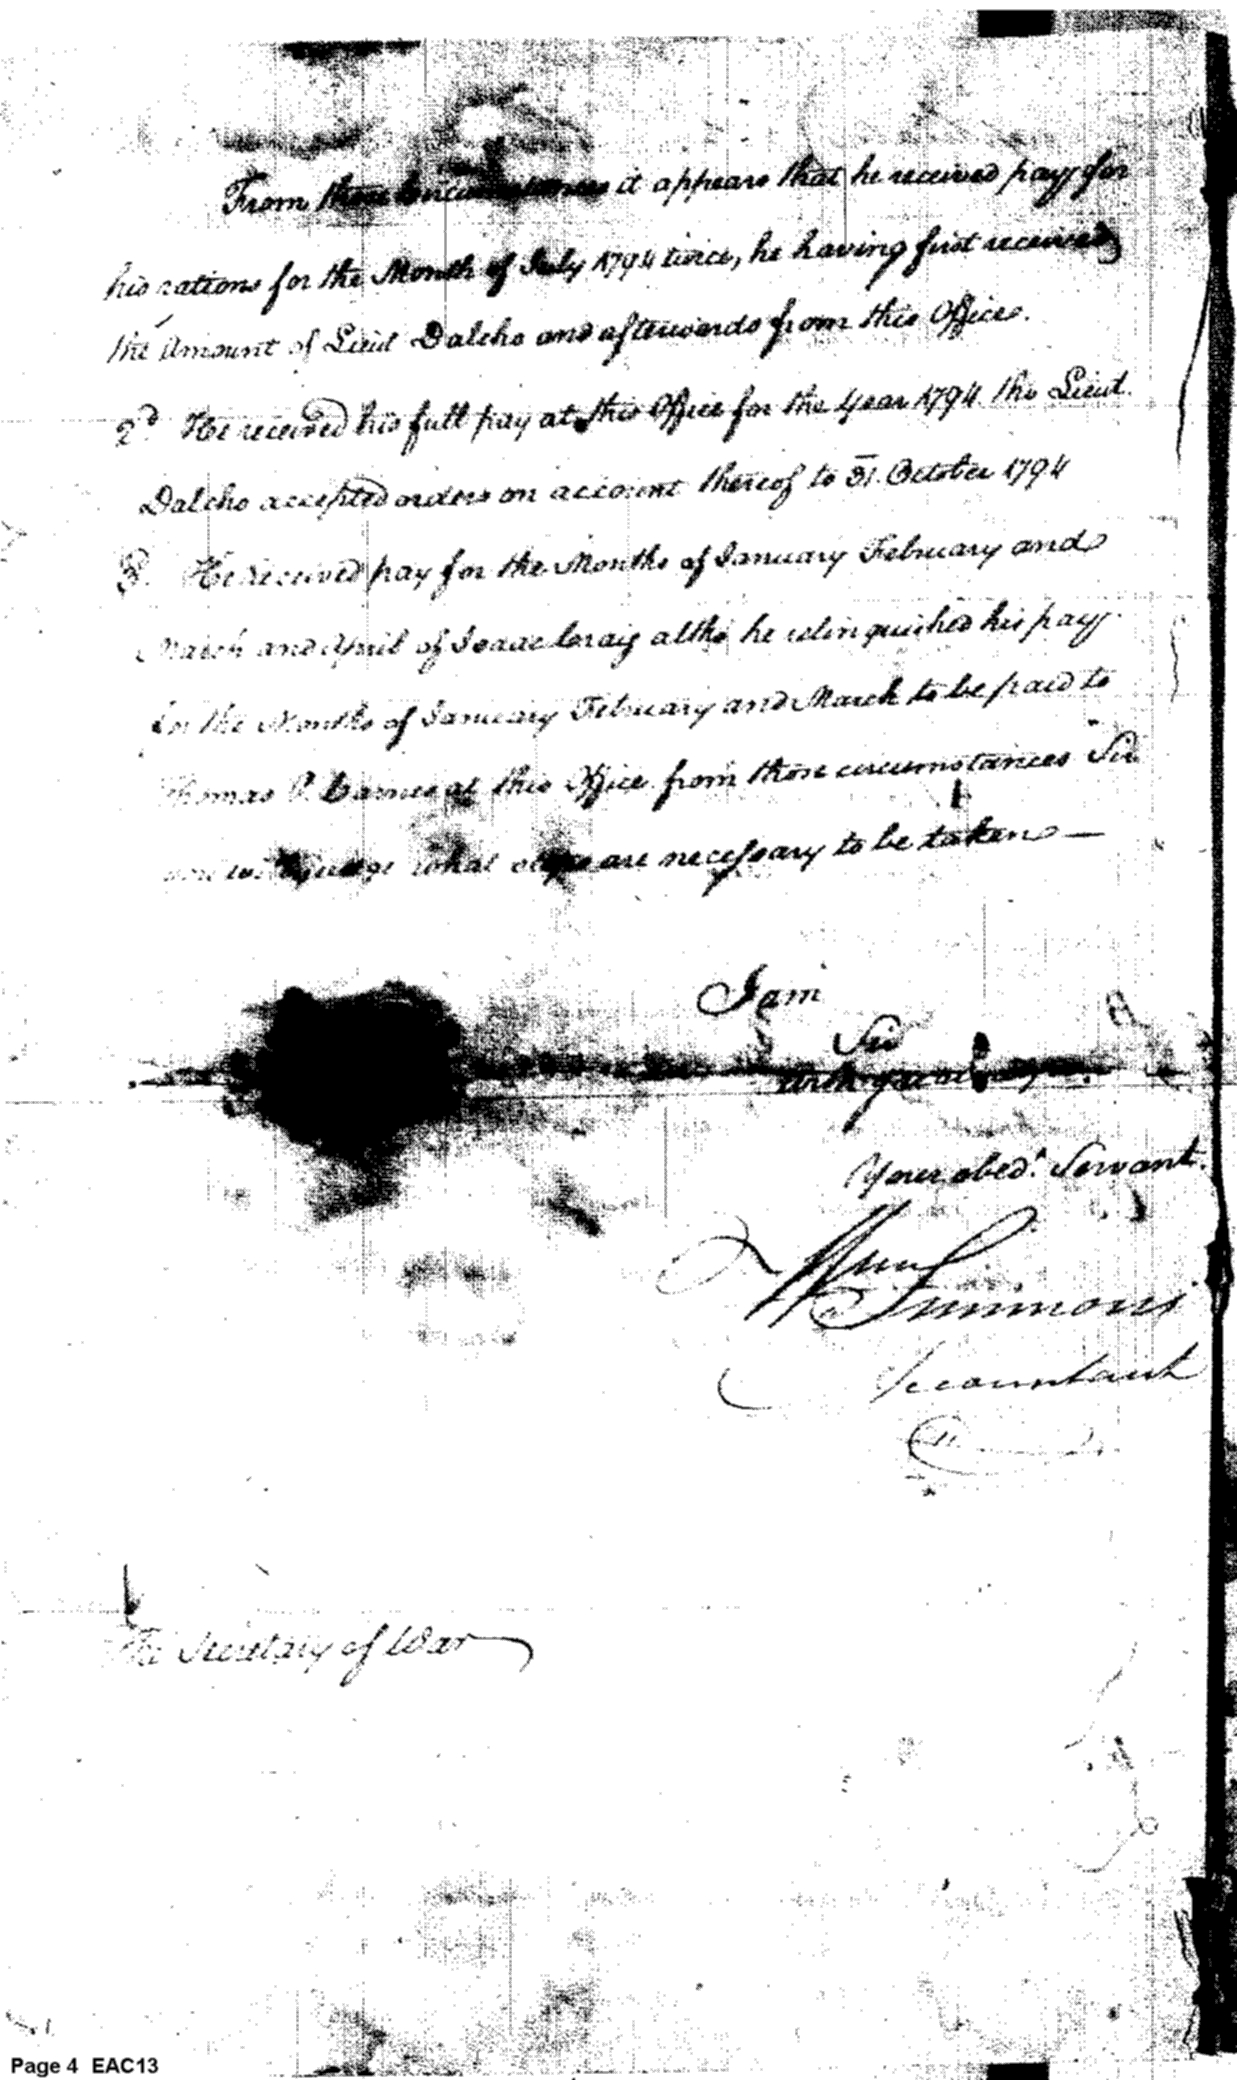 From these Circumstances it appears that he received pay for
his rations for the Month of July 1794 twice, he having first received
the Amount of Lieut Dalcho and afterwards from this Office.
2d. He received his full pay at this Office for the Year 1794. tho Lieut.
Dalcho accepted orders on account thereof to 31. October 1794
3. He received pay for the Months of January February and
March and April of Isaac Craig altho' he relinquished his pay
for the Months of January February and March to be paid to
Thomas P. Barnes at this Office from those circumstances Sir
you will judge what steps are necessary to be taken —
I am
Sir
Your obedt. Servant.
Wm Simmons
Accountant
The Secretary of War
Page 4 EAC13